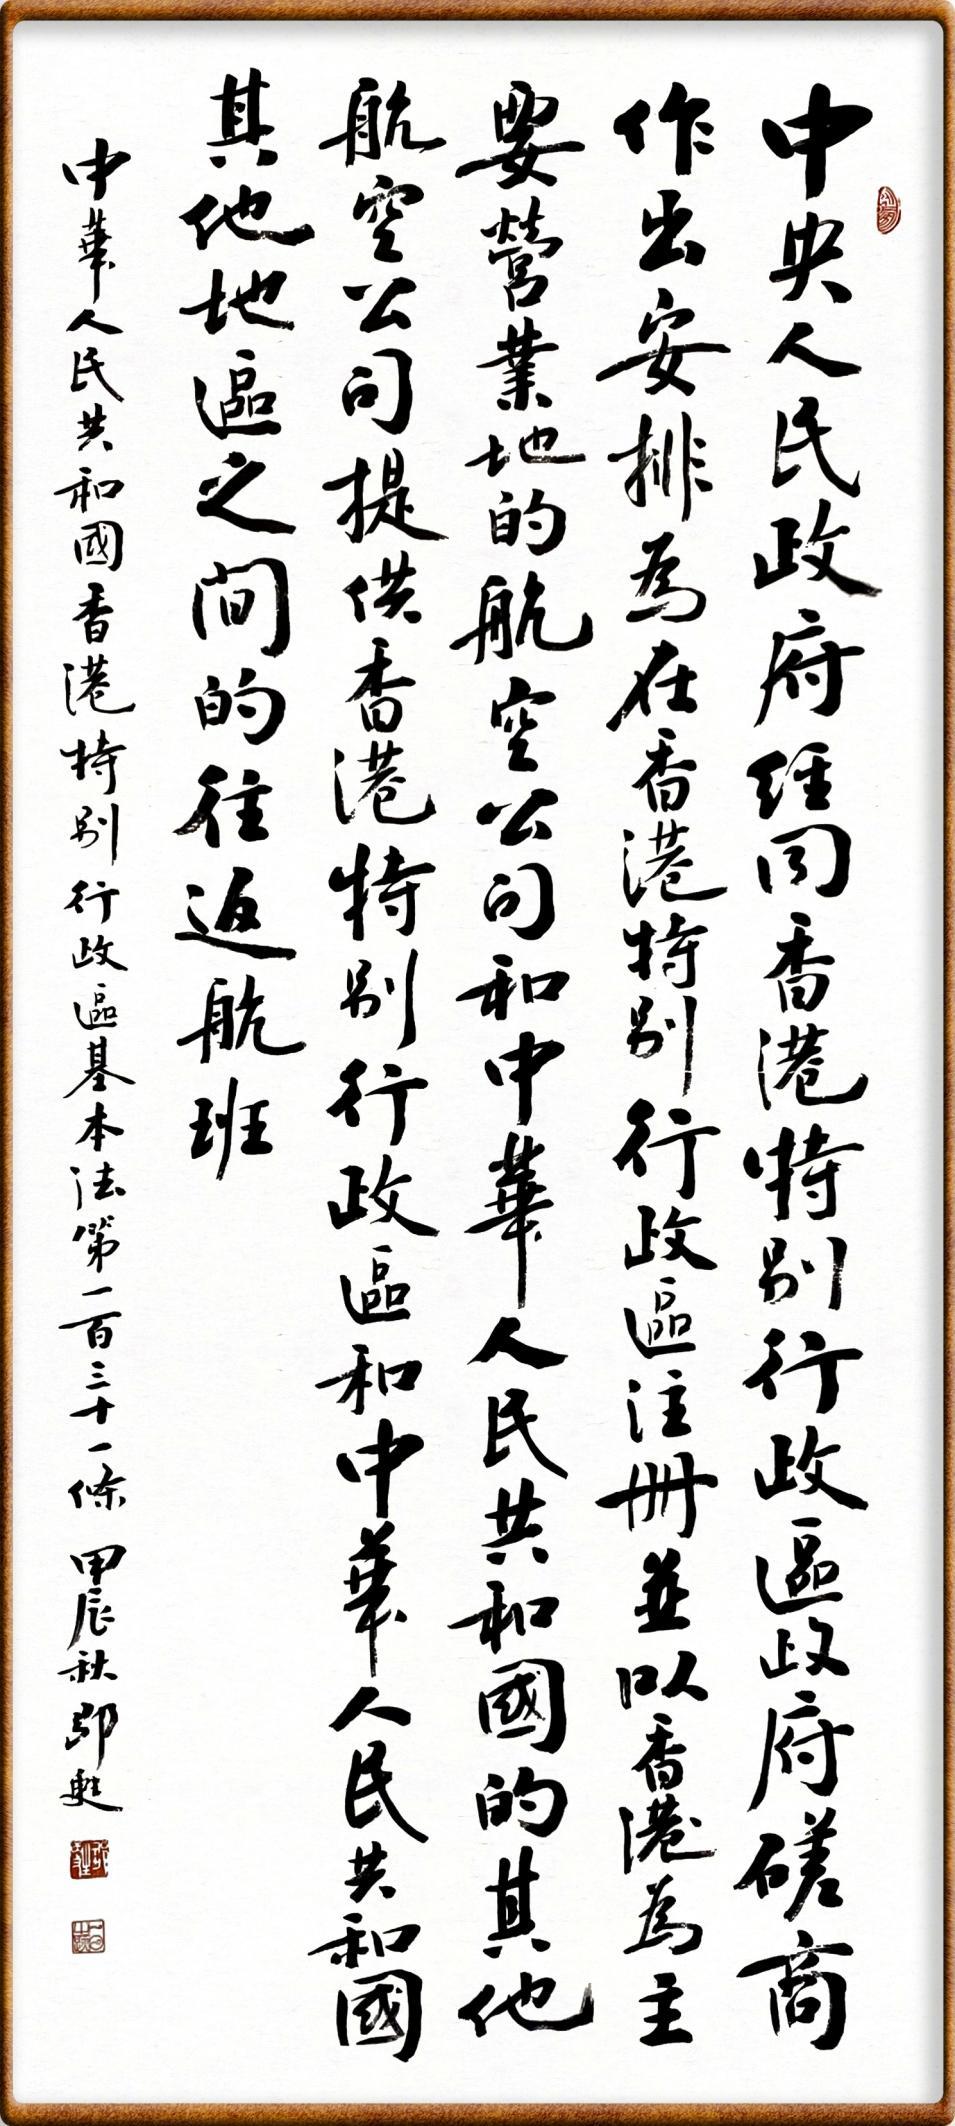 中央人民政府經同香港特別行政區政府磋商
作出安排為在香港特別行政區注冊並以香港為主
要營業地的航空公司和中華人民共和國的其他
航空公司提供香港特別行政區和中華人民共和國
其他地區之間的往返航班
中華人民共和國香港特別行政區基本法第一百三十一條 甲辰秋